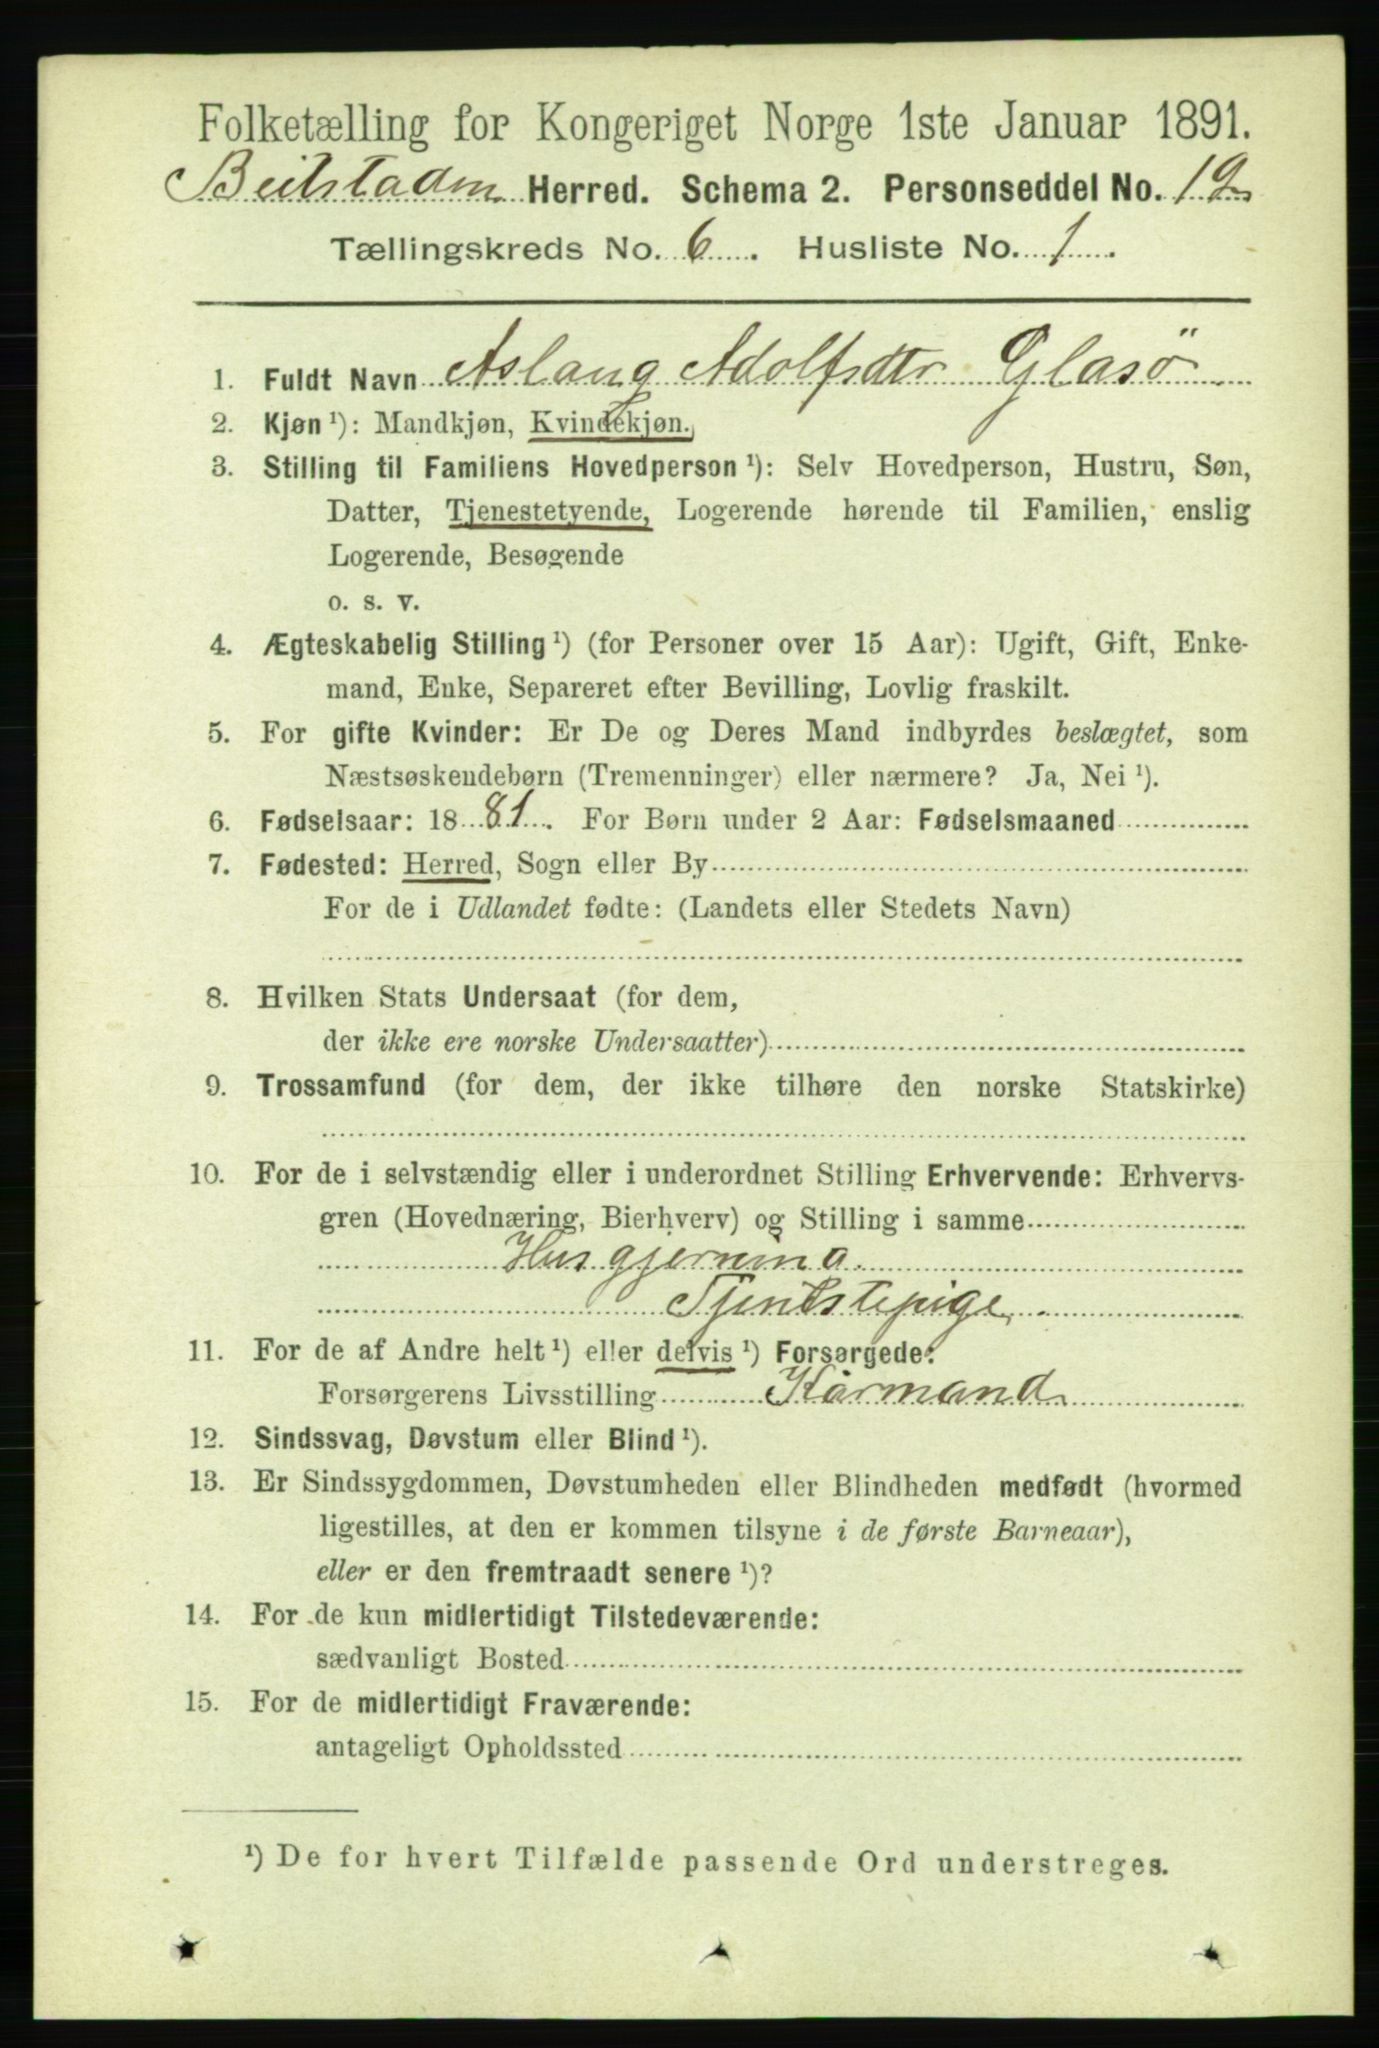 Folketælling for Kongeriget Norge 1ste Januar 1891.
Beitstaden Herred. Schema 2. Personseddel No. 19
Tællingskreds No. 6. Husliste No. 1.
1. Fuldt Navn Aslaug Adolfsdtr Glasö
2. Kjøn ¹): Mandkjøn, Kvindekjøn.
3. Stilling til Familiens Hovedperson ¹): Selv Hovedperson, Hustru, Søn,
Datter, Tjenestetyende, Logerende hørende til Familien, enslig
Logerende, Besøgende
o. s. v.
4. Ægteskabelig Stilling ¹) (for Personer over 15 Aar): Ugift, Gift, Enke-
mand, Enke, Separeret efter Bevilling, Lovlig fraskilt.
5. For gifte Kvinder: Er De og Deres Mand indbyrdes beslægtet, som
Næstsøskendebørn (Tremenninger) eller nærmere? Ja, Nei ¹).
6. Fødselsaar: 1881. For Børn under 2 Aar: Fødselsmaaned
7. Fødested: Herred, Sogn eller By
For de i Udlandet fødte: (Landets eller Stedets Navn)
8. Hvilken Stats Undersaat (for dem,
der ikke ere norske Undersaatter)
9. Trossamfund (for dem, der ikke tilhøre den norske Statskirke)
10. For de i selvstændig eller i underordnet Stilling Erhvervende: Erhvervs-
gren (Hovednæring, Bierhverv) og Stilling i samme
Husgjerning
Tjenestepige.
11. For de af Andre helt ¹) eller delvis ¹) Forsørgede:
Forsørgerens Livsstilling Kårmand
12. Sindssvag, Døvstum eller Blind ¹).
13. Er Sindssygdommen, Døvstumheden eller Blindheden medfødt (hvormed
ligestilles, at den er kommen tilsyne i de første Barneaar),
eller er den fremtraadt senere ¹)?
14. For de kun midlertidigt Tilstedeværende:
sædvanligt Bosted
15. For de midlertidigt Fraværende:
antageligt Opholdssted
¹) De for hvert Tilfælde passende Ord understreges.